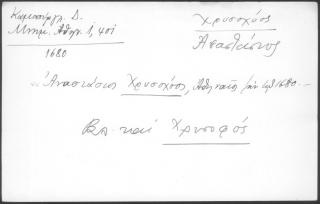 Καμπούρογλ. Δ.
Μνημ. Ἀθην. 1, 401
1680
Χρυσχόος
Ἀναστάσιος
Ἀναστάσιος Χρυσχόος, Ἀθηναῖος 1680.-
Βλ. καί Χρυσοφός